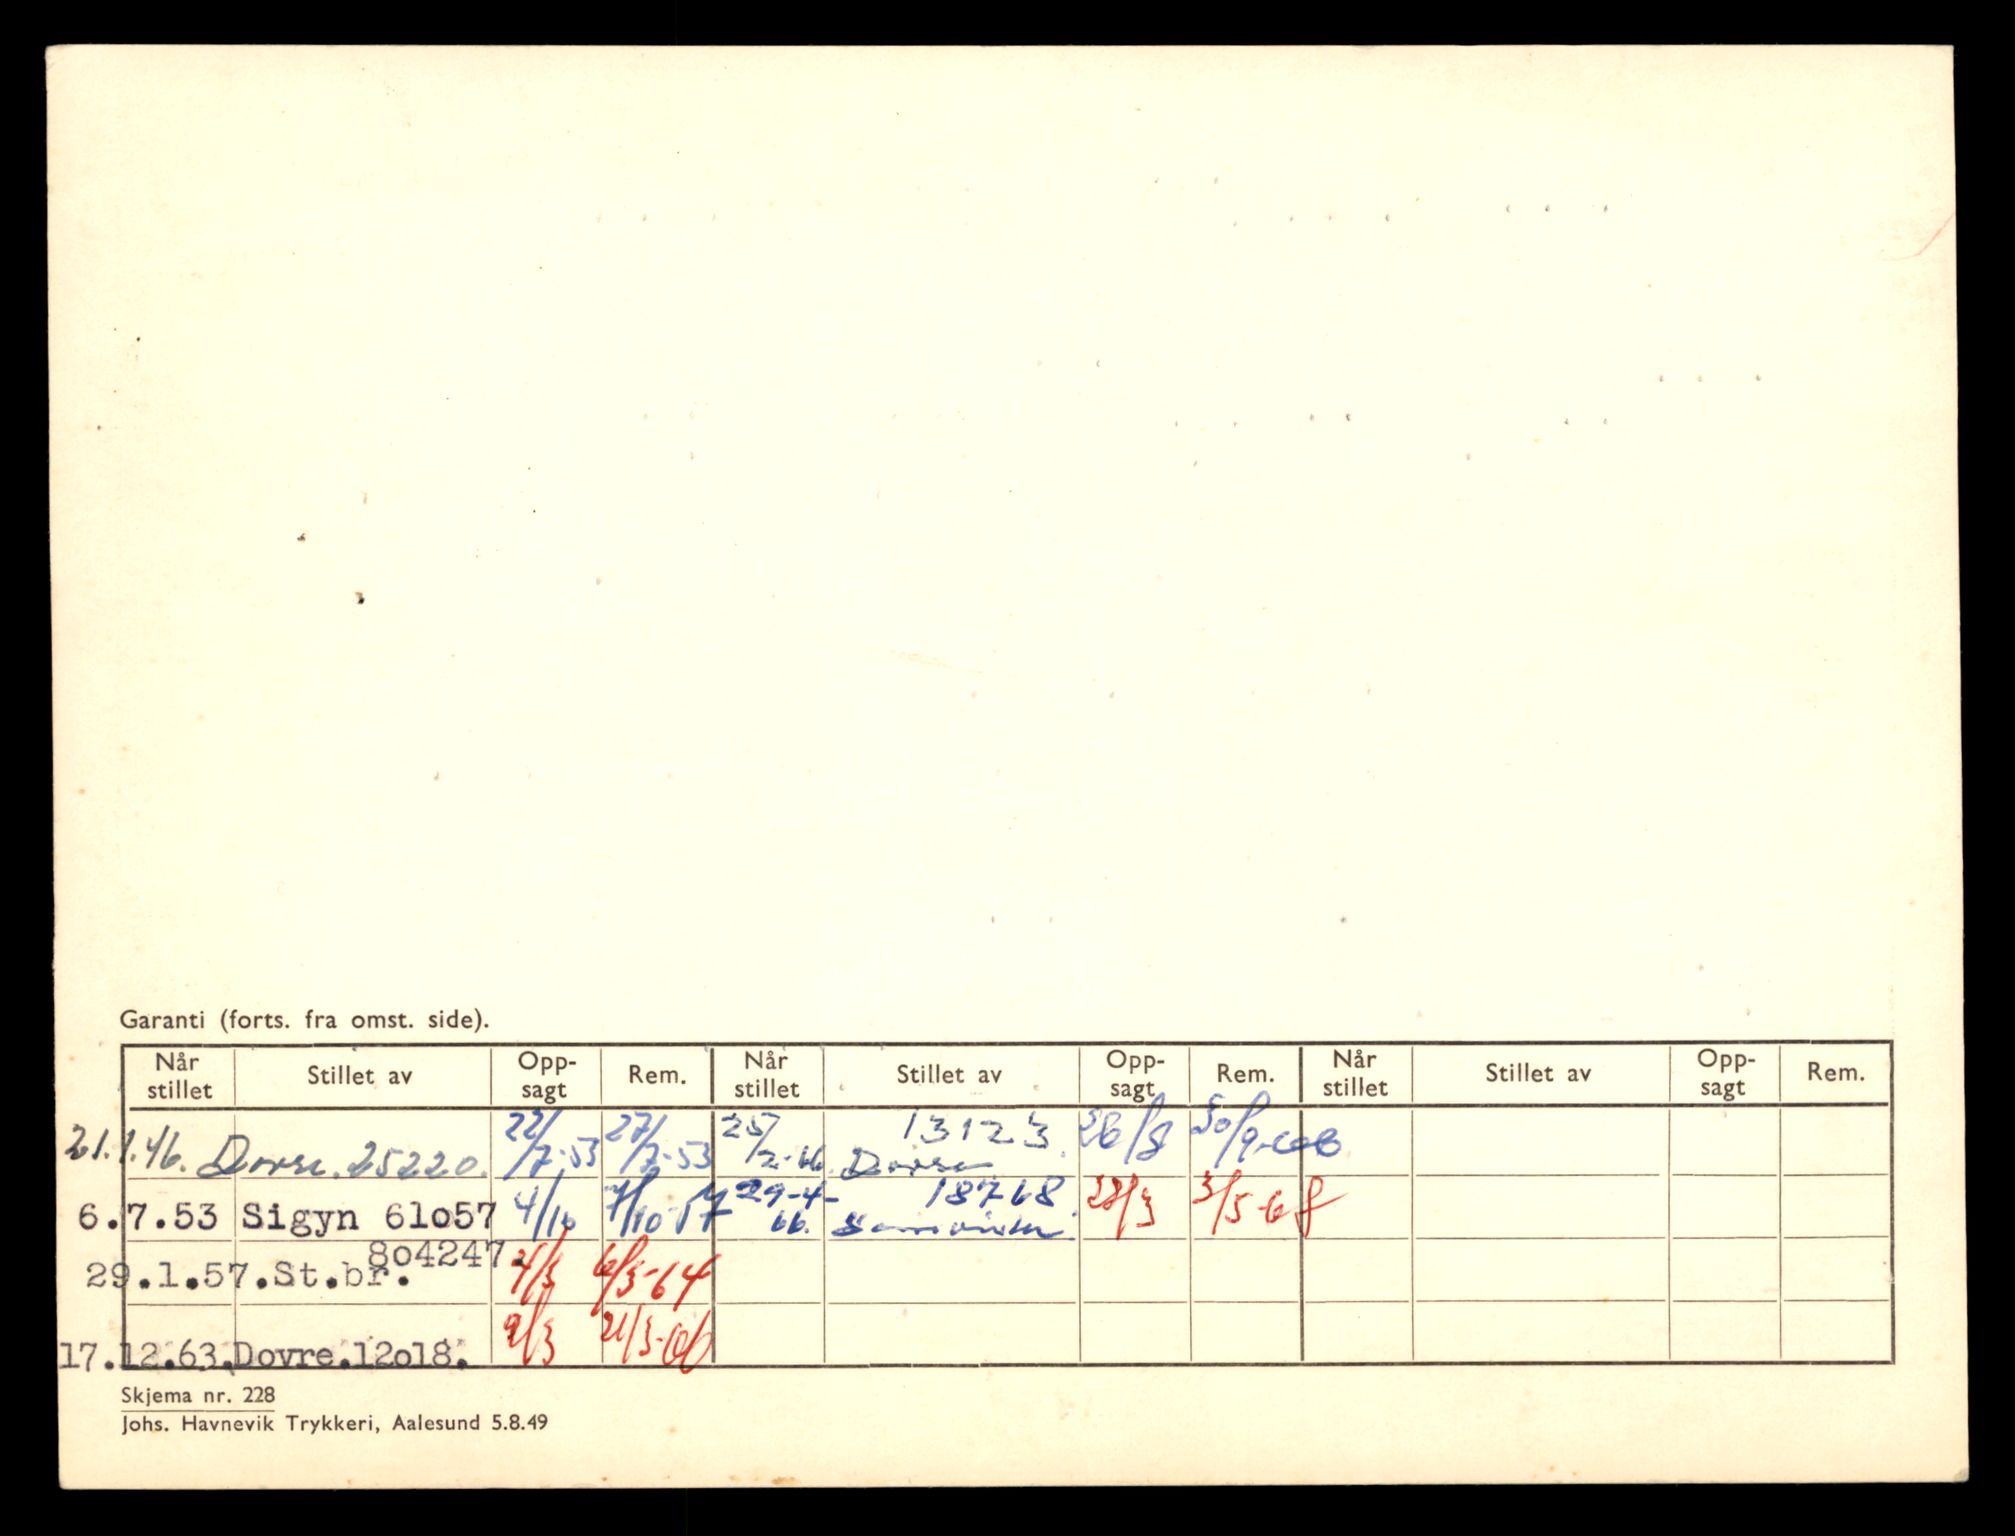 Garanti (forts. fra omst. side).
Når stillet Stillet av Opp-sagt Rem. Når stillet Stillet av Opp-sagt Rem. Når stillet Stillet av Opp-sagt Rem.
21.1.46. Dovre. 25220. 22/7-53 27/7-53 25/2-66 13123. Dovre 26/8 30/9-66
6.7.53 Sigyn 61o57 4/10 7/10-57 29-4-66. 18768. 28/3 3/5-68
29.1.57.St.br. 8o4247 4/3 6/3-64
17.12.63.Dovre.12o18. 9/3 21/3-66
Skjema nr. 228
Johs. Havnevik Trykkeri, Aalesund 5.8.49